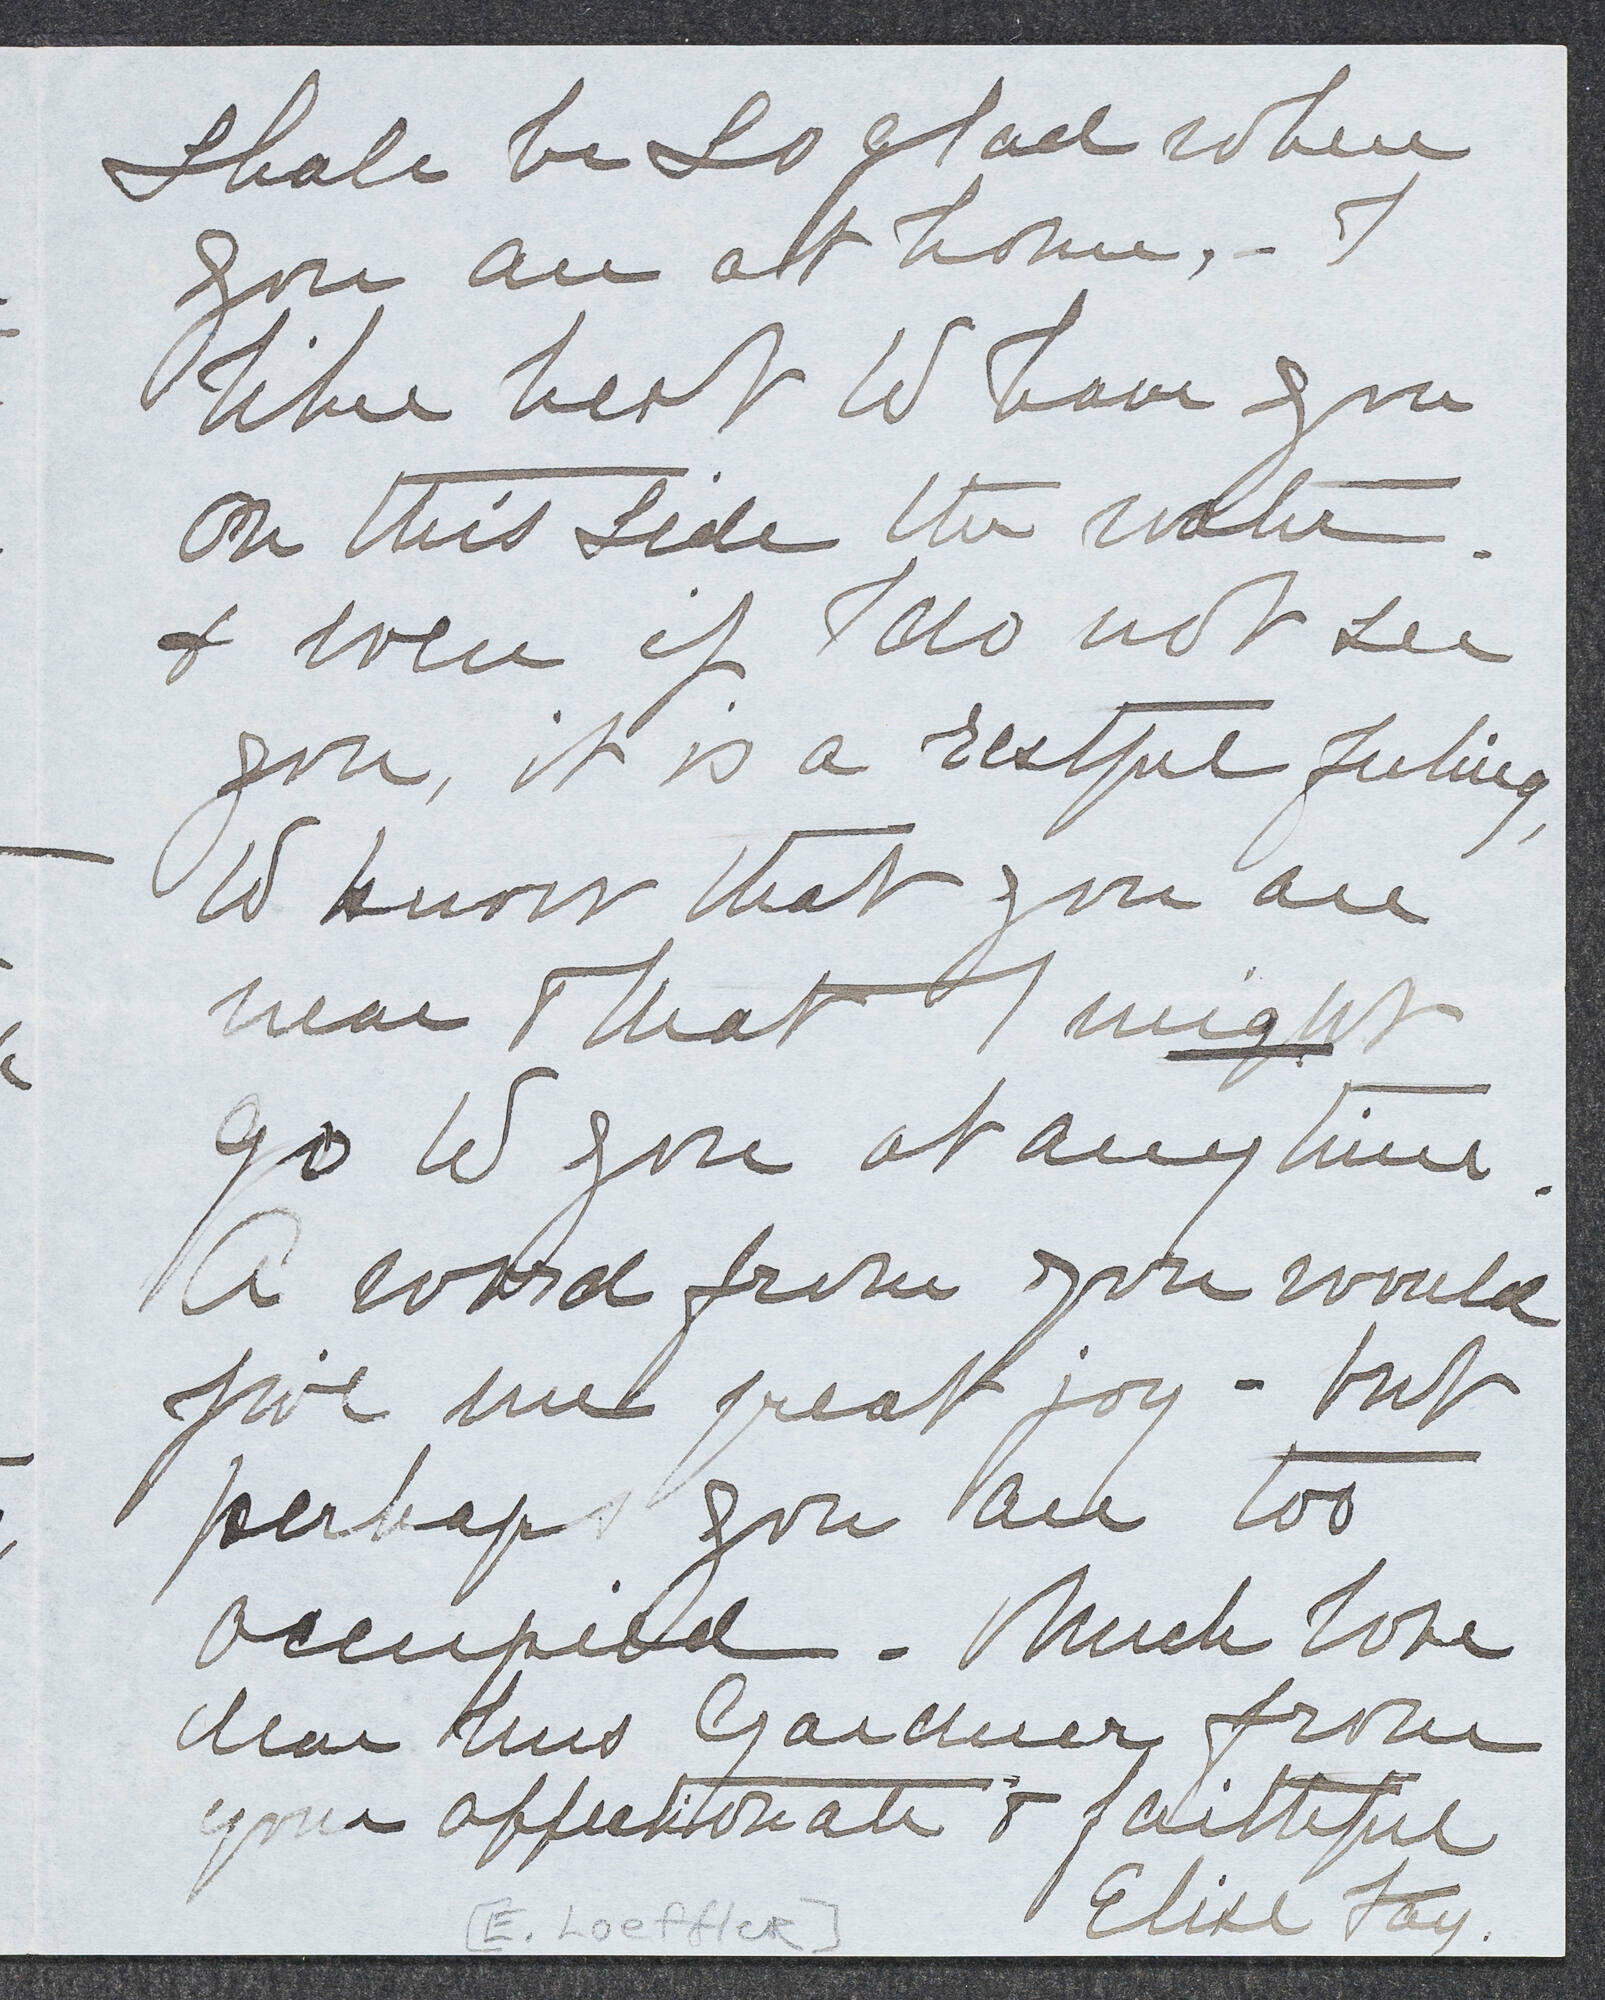 shall be so glad when
you are at home, - I
like best to have you
on this side the water.
& even if I do not see
you, it is a restful feeling,
to know that you are
near & that I might
go to you at any time.
A word from you would
give me great joy - but
perhaps you are too
occupied. - Much love
dear Mrs Gardner from
your affectionate & faithful
Elise Fay.
[E. Loeffler]